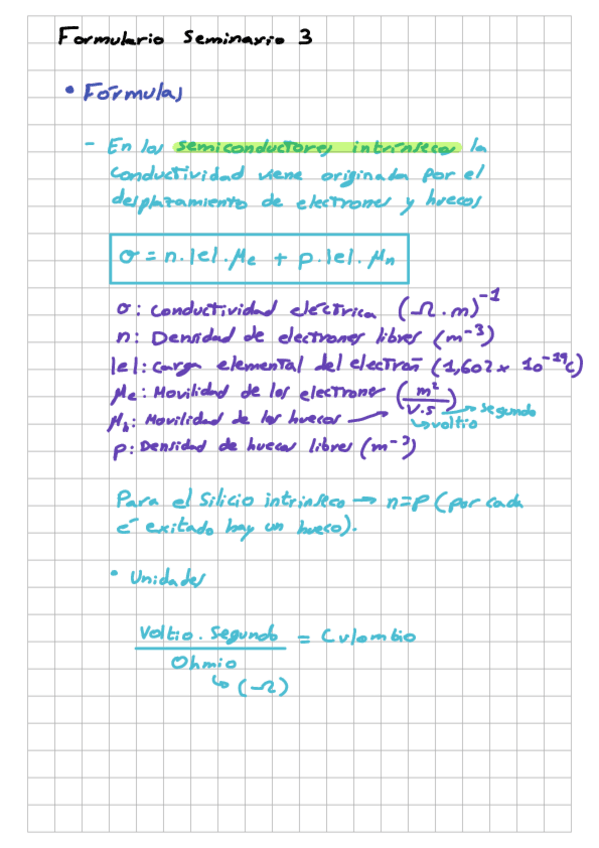 Formulario Seminario 3
• Fórmulas
- En los semiconductores intrínsecos la
conductividad viene originada por el
desplazamiento de electrones y huecos
σ = n.|e|.μe + p.|e|.μn
σ: Conductividad eléctrica (Ω.m)⁻¹
n: Densidad de electrones libres (m⁻³)
|e|: Carga elemental del electrón (1,602 x 10⁻¹⁹C)
μe: Movilidad de los electrones (m²/V.s) → segundo
μh: Movilidad de los huecos → ↳ voltio
p: Densidad de huecos libres (m⁻³)
Para el Silicio intrínseco → n=p (por cada
e⁻ exitado hay un hueco).
• Unidades
Voltio. Segundo / Ohmio = Culombio
↳ (Ω)